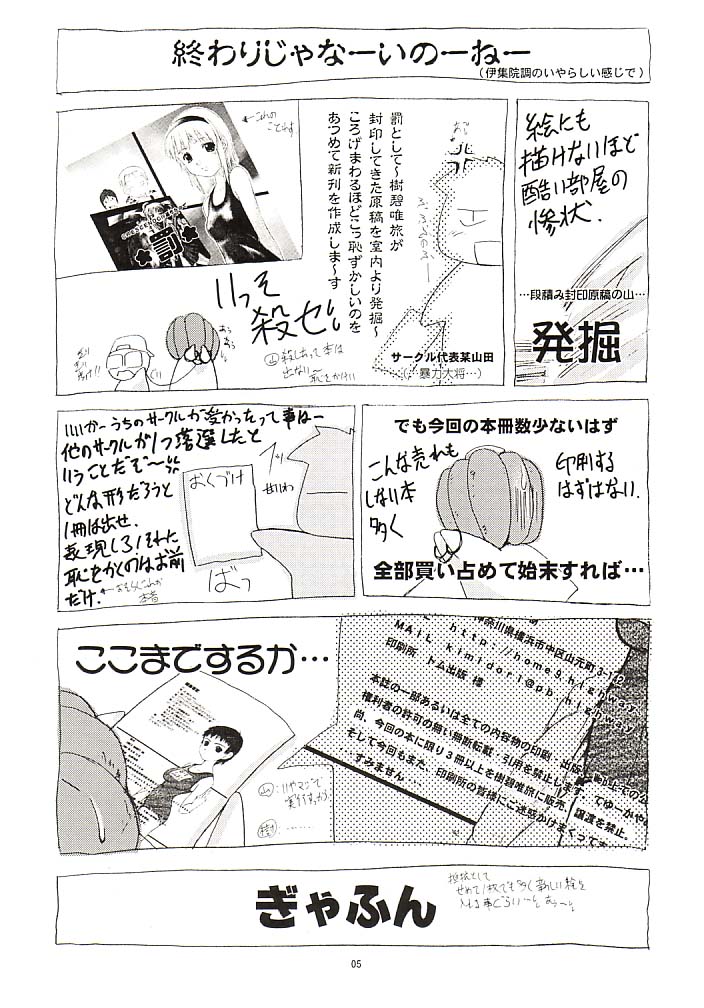 終わりじゃなーいのーねー
（伊集院調のいやらしい感じで）
絵にも
描けないほど
酷い部屋の
惨状.
…段積み封印原稿の山…
発掘
罰として〜樹碧唯旅が
封印してきた原稿を室内より発掘〜
ころげまわるほどこっ恥ずかしいのを
あつめて新刊を作成しま〜す
サークル代表某山田
(…暴力大将…)
←これの
ことらす
罰
いっそ
殺せ
でも今回の本冊数少ないはず
印刷する
はずはない.
こんな売れも
しない本
多く
全部買い占めて始末すれば…
いいかーうちのサークルが受かったって事はー
他のサークルが1つ落選したと
いうことだぞ〜
どんな形だろうと
1冊は出せ.
表現しろ！それに
恥をかくのはお前
だけ.
おくづけ
ばっ
ここまでするか…
神奈川県横浜市中区山元町3-1
MAIL kimidori@pb.highway
印刷所 トム出版 様
本誌の一部あるいは全ての内容物の印刷・出版
権利者の許可の無い無断転載、引用を禁止します
尚、今回の本に限り3冊以上を樹碧唯旅に販売、譲渡を禁止。
そして今回もまた、印刷所の皆様にご迷惑かけまくって
すみません
ぎゃふん
抵抗として
せめて1枚でも多く新しい絵を
05